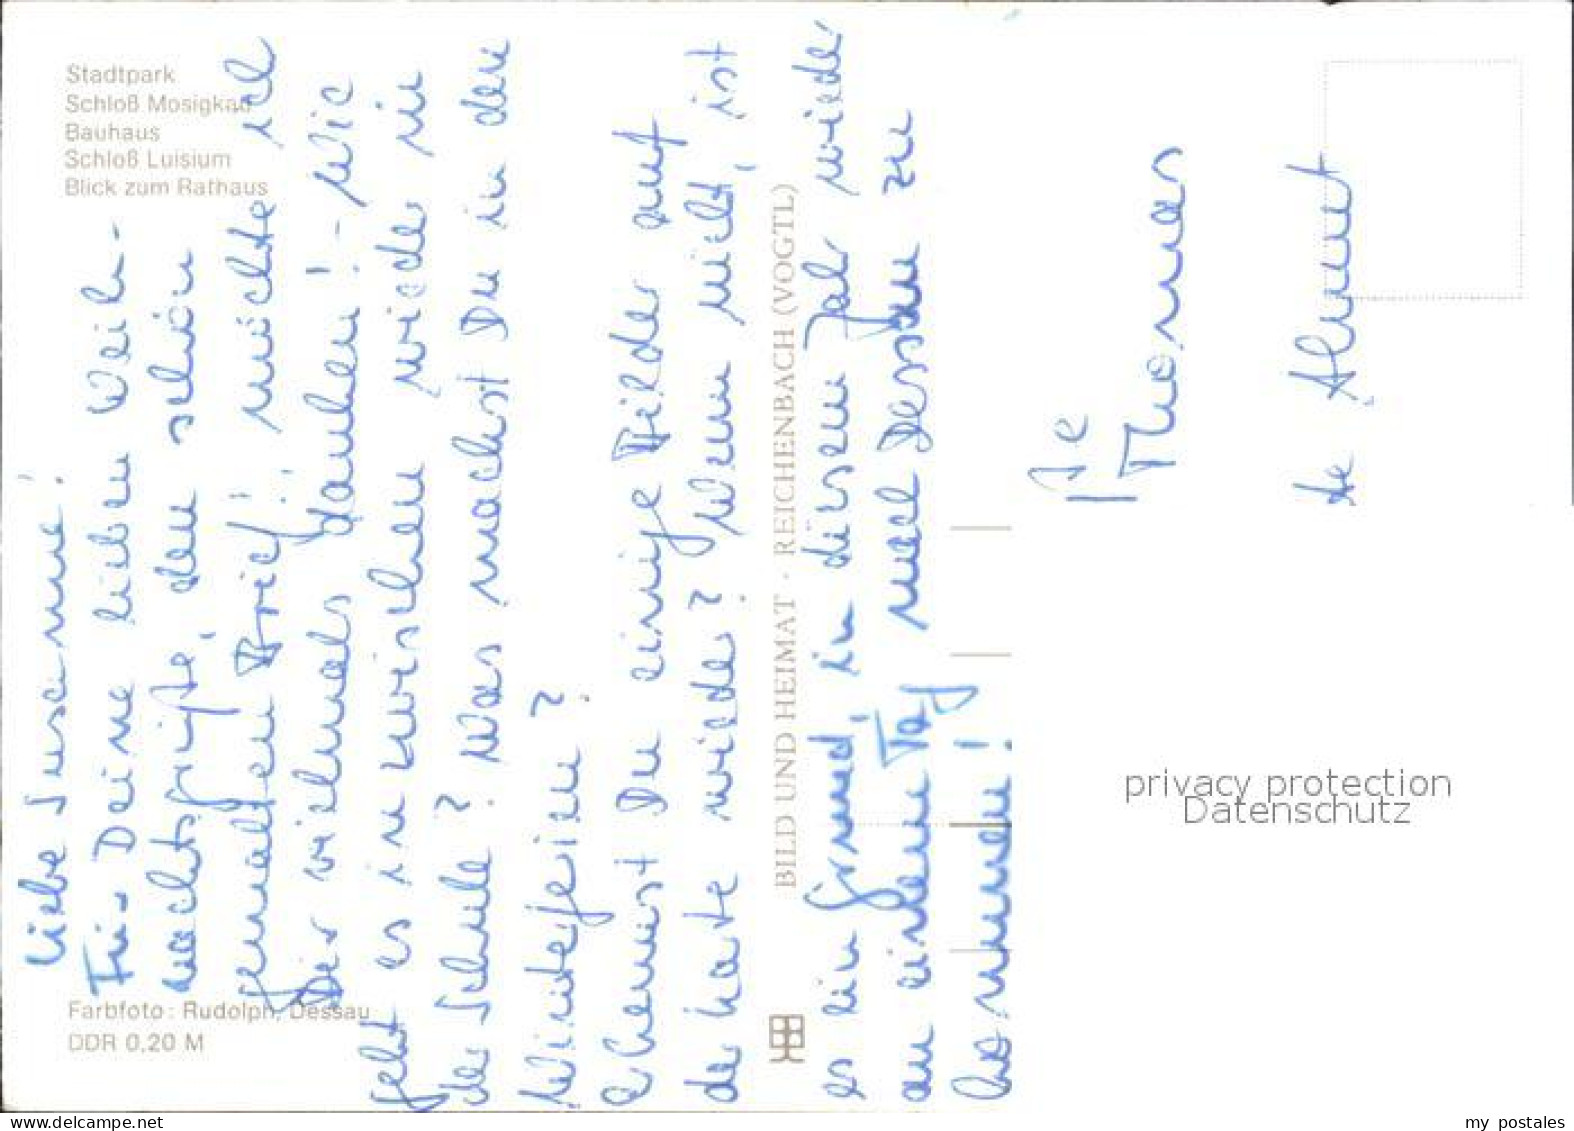 Stadtpark
Schloß Mosigkau
Bauhaus
Schloß Luisium
Blick zum Rathaus
Liebe Susanne!
Für Deine lieben Weih-
nachtsgrüße, den schön
gemalten Brief! möchte ich
Dir vielmals danken! - Wie
geht es inzwischen wieder in
der Schule? Was machst Du in den
Winterferien?
Erkennst Du einige Bilder auf
der Karte wieder? Wenn nicht, ist
es ein Grund, in diesem Jahr wieder
an einem Tag nach Dessau zu
kommen!
Thomas
Almut
BILD UND HEIMAT · REICHENBACH (VOGTL)
Farbfoto: Rudolph, Dessau
DDR 0,20 M
privacy protection
Datenschutz
www.delcampe.net
my_postales